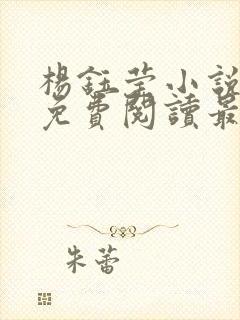 楊鈺莹小說
免費閱讀最
朱蕾